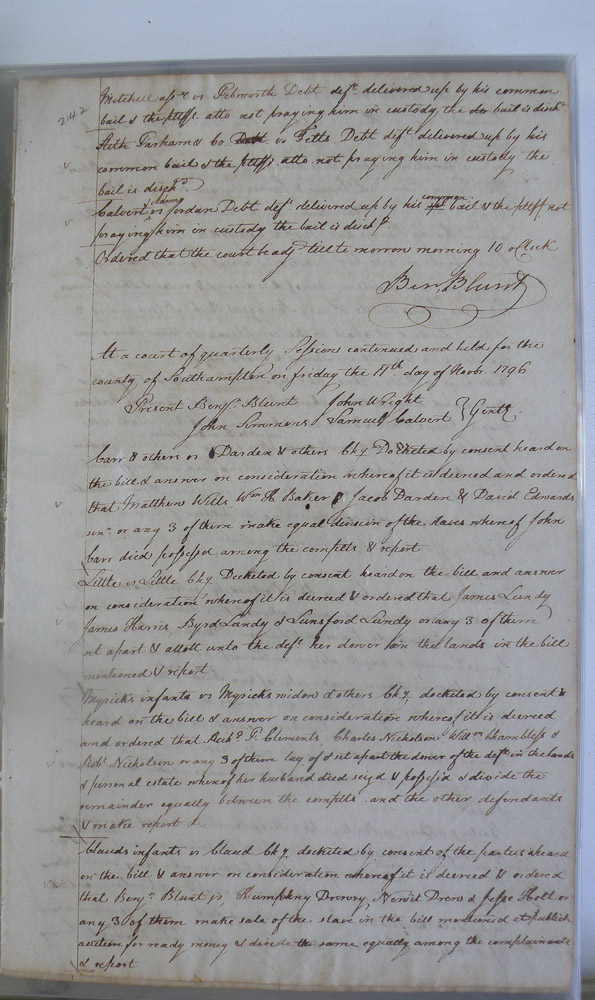 242
Mitchell assee vs Pebworth Debt deft. delivered up by his common
bail & the pltff. atto not praying him in custody the bail is dischd.
Parham & Co. vs Felts Debt deft. delivered up by his
common bail & the pltffs. atto. not praying him in custody the
bail is dischd.
Calvert & Adams vs Jordan Debt deft. delivered up by his common bail & the pltff not
praying him in custody the bail is dischd.
Ordered that the court be adjd. till to morrow morning 10 oClock
Benj. Blunt
At a court of quarterly Session continued and held for the
county of Southampton on friday the 11th. day of Novr. 1796
Present Benja. Blunt John Wright
John Simmons Samuel Calvert } Gentn.
Carr & others vs Darden & others Chy. Docketed by consent heard on
the bill & answer on consideration whereof it is decreed and ordered
that Matthew Wills, Wm. H. Baker, Jacob Darden & David Edwards
senr. or any 3 of them make equal division of the slaves whereof John
Carr died possessed among the complts & report
Little vs Little Chy. Docketed by consent heard on the bill and answer
on consideration whereof it is decreed & ordered that James Lundy
James Harris, Byrd Lundy & Lunsford Lundy or any 3 of them
set apart & allott unto the deft. her dower in the lands in the bill
mentioned & report
Myricks infants vs Myricks widow & others Chy. docketed by consent &
heard on the bill & answer on consideration whereof it is decreed
and ordered that F. Clements, Charles Nicholson, Willm. Chambliss &
Robt. Nicholson or any 3 of them lay of & set apart the dower of the deft. in the lands
& personal estate whereof her husband died seizd & possessd & divide the
remainder equally between the complts. and the other defendants
& make report
Clauds infants vs Claud Chy. docketed by consent of the parties & heard
on the bill & answer on consideration whereof it is decreed & ordered
that Benja. Blunt jr, Humphry Drewry, Newit Drew & Jesse Holt or
any 3 of them make sale of the slave in the bill mentioned at publick
auction for ready money & divide the same equally among the complainants
& report